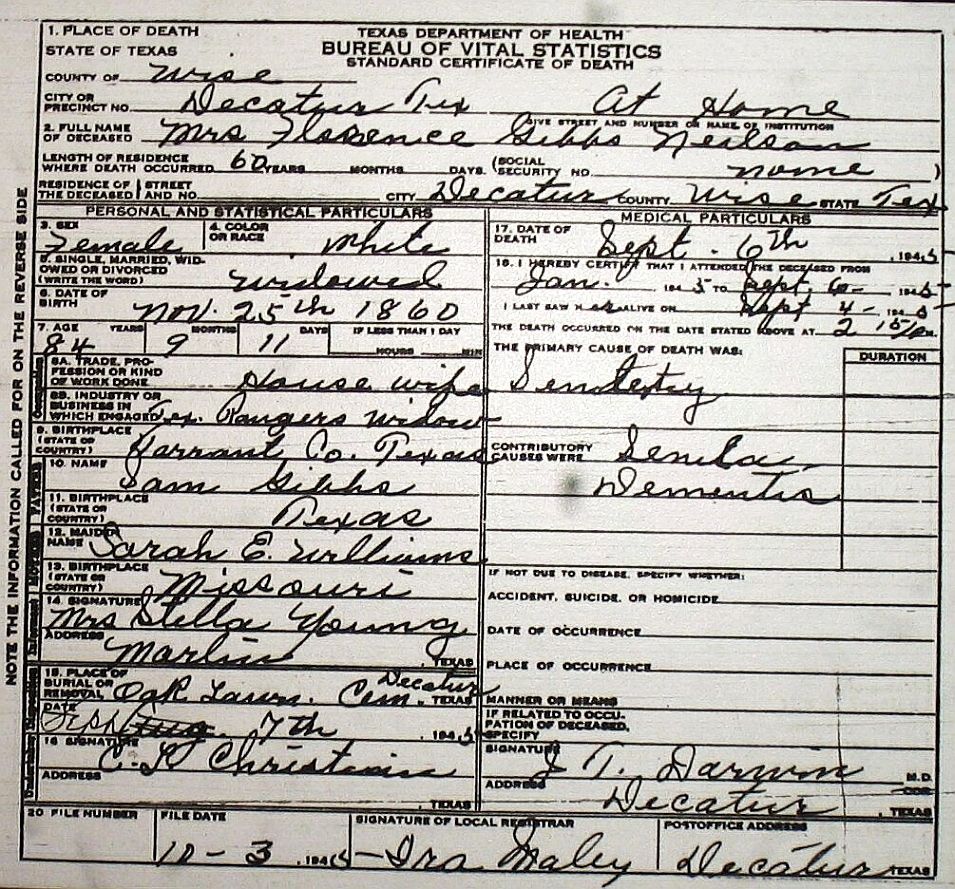 1. PLACE OF DEATH
STATE OF TEXAS
TEXAS DEPARTMENT OF HEALTH
BUREAU OF VITAL STATISTICS
STANDARD CERTIFICATE OF DEATH
COUNTY OF Wise
CITY OR PRECINCT NO. Decatur Tex At Home
GIVE STREET AND NUMBER OR NAME OF INSTITUTION
2. FULL NAME OF DECEASED Mrs Florence Gibbs Neilson
LENGTH OF RESIDENCE WHERE DEATH OCCURRED 60 YEARS MONTHS DAYS. (SOCIAL SECURITY NO. none )
RESIDENCE OF THE DECEASED STREET AND NO. CITY Decatur COUNTY Wise STATE Tex
PERSONAL AND STATISTICAL PARTICULARS
3. SEX Female 4. COLOR OR RACE White
5. SINGLE, MARRIED, WIDOWED OR DIVORCED (WRITE THE WORD) Widowed
6. DATE OF BIRTH Nov. 25th 1860
7. AGE YEARS MONTHS DAYS IF LESS THAN 1 DAY
84 9 11 HOURS MIN
8A. TRADE, PROFESSION OR KIND OF WORK DONE House wife
8B. INDUSTRY OR BUSINESS IN WHICH ENGAGED Tex. Rangers Widow
9. BIRTHPLACE (STATE OR COUNTRY) Tarrant Co. Texas
10. NAME Sam Gibbs
11. BIRTHPLACE (STATE OR COUNTRY) Texas
12. MAIDEN NAME Sarah E. Williams
13. BIRTHPLACE (STATE OR COUNTRY) Missouri
14. SIGNATURE Mrs Stella Young
ADDRESS Marlin , TEXAS
15. PLACE OF BURIAL OR REMOVAL Oak Lawn. Cem. Decatur , TEXAS
DATE Sept Aug. 7th , 1945
16 SIGNATURE C. L. Christian
ADDRESS , TEXAS
MEDICAL PARTICULARS
17. DATE OF DEATH Sept. 6th , 1945
18. I HEREBY CERTIFY THAT I ATTENDED THE DECEASED FROM
Jan. 1945 TO Sept. 6 1945
I LAST SAW H er ALIVE ON Sept 4 - 1945
THE DEATH OCCURRED ON THE DATE STATED ABOVE AT 2 15 P M.
THE PRIMARY CAUSE OF DEATH WAS: DURATION
CONTRIBUTORY CAUSES WERE Senile
Dementia
IF NOT DUE TO DISEASE, SPECIFY WHETHER:
ACCIDENT, SUICIDE, OR HOMICIDE
DATE OF OCCURRENCE
PLACE OF OCCURRENCE
MANNER OR MEANS
IF RELATED TO OCCUPATION OF DECEASED, SPECIFY
SIGNATURE J T. Darwin M.D.
ADDRESS Decatur , TEXAS
20 FILE NUMBER FILE DATE SIGNATURE OF LOCAL REGISTRAR POSTOFFICE ADDRESS
10 - 3 , 1945 Ira Maley Decatur TEXAS
NOTE THE INFORMATION CALLED FOR ON THE REVERSE SIDE